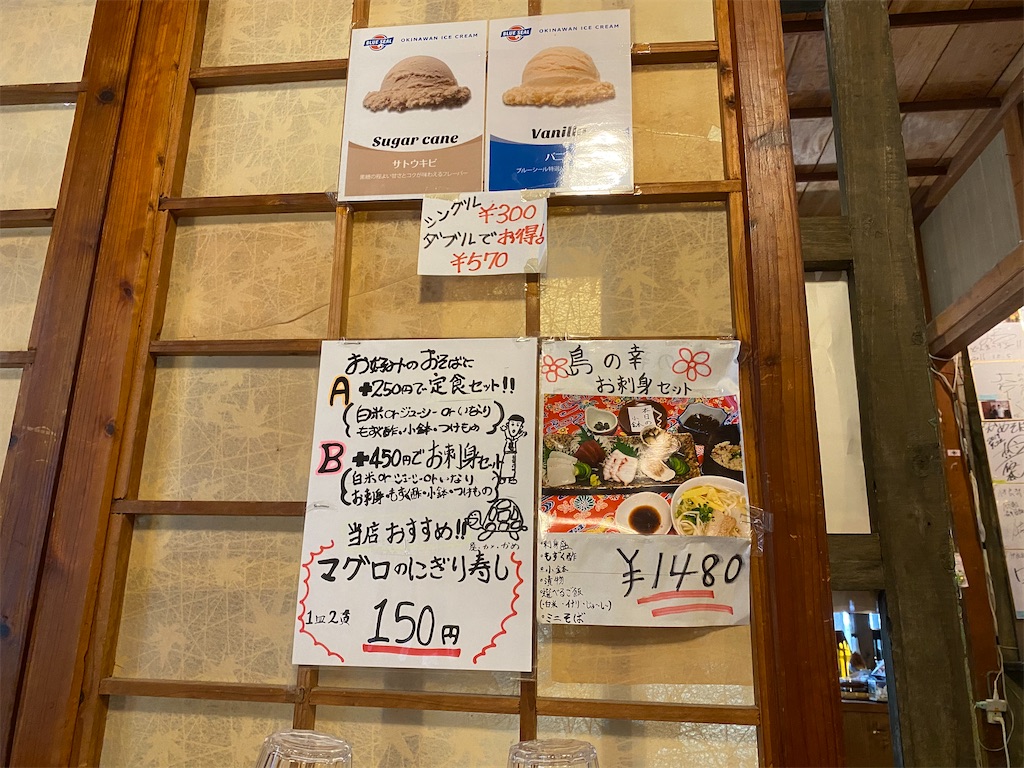 BLUE SEAL
OKINAWAN ICE CREAM
Sugar cane
サトウキビ
黒糖の程よい甘さとコクが味わえるフレーバー
BLUE SEAL
OKINAWAN ICE CREAM
Vanill
バニ
ブルーシール特選
シングル ¥300
ダブルでお得!
¥570
お好みのおそばに
A +250円で定食セット!!
(白米orジューシーorいなり
もずく酢・小鉢・つけもの)
B +450円でお刺身セット
(白米orジューシーorいなり
お刺身・もずく酢・小鉢・つけもの)
当店おすすめ!!
マグロのにぎり寿し
1皿2貫 150円
島の幸
お刺身セット
¥1480
・もずく酢
・小鉢
・漬物
・選べるご飯
・ミニそば